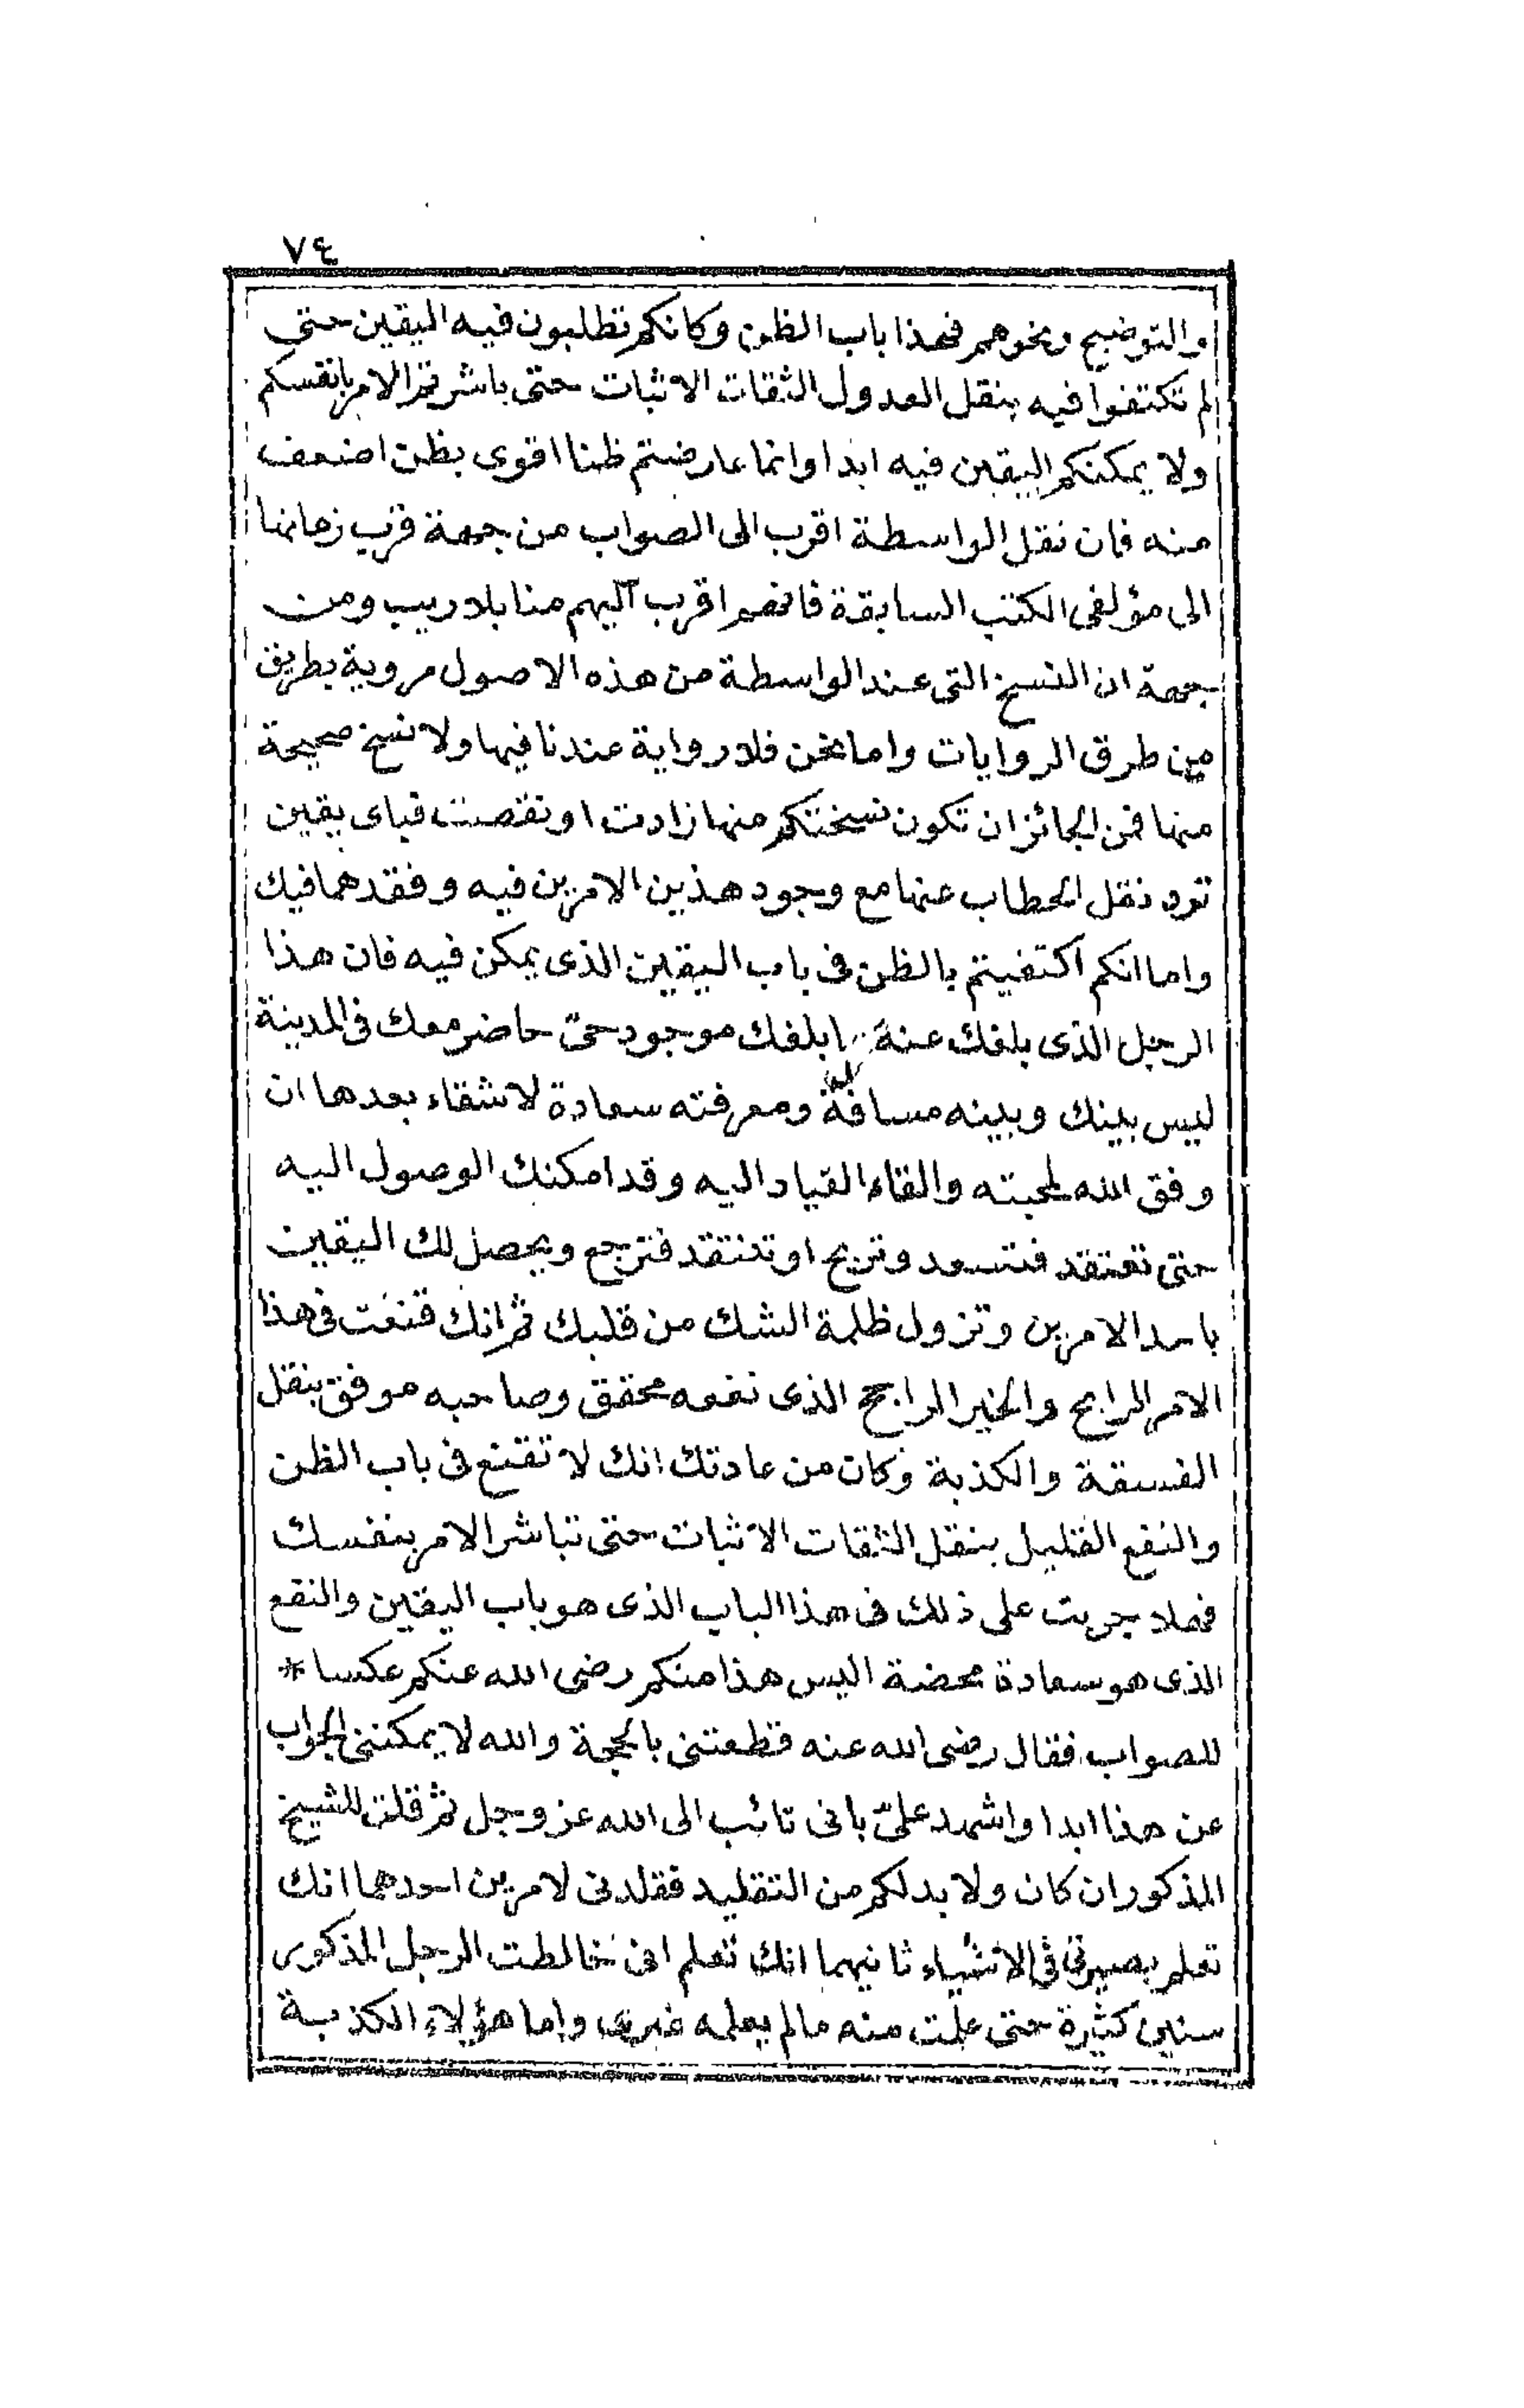 ٧٤
والتوضيح ونحوهم فهذا باب الظن وكانكم تطلبون فيه اليقين حتى
لم تكتفوا فيه بنقل العدول الثقات الاثبات حتى باشرتم الامر بانفسكم
ولا يمكنكم اليقين فيه ابدا وانما عارضتم ظنا اقوى بظن اضعف
منه فان نقل الواسطة اقرب الى الصواب من جهة قرب زماننا
الى مؤلفى الكتب السابقة فانهم اقرب اليهم منا بلا ريب ومن
جهة ان النسخ التى عند الواسطة من هذه الاصول مروية بطريق
من طرق الروايات واما نحن فلا رواية عندنا فيها ولا نسخ صحيحة
منها فمن الجائز ان تكون نسختكم منها زادت او نقصت فباى يقين
ترد نقل الحطاب عنها مع وجود هذين الامرين فيه وفقدهما فيك
واما انكم اكتفيتم بالظن فى باب اليقين الذى يمكن فيه فان هذا
الرجل الذى بلغك عنه ما بلغك موجود حىّ حاضر معك فى المدينة
ليس بينك وبينه مسافة ومعرفته سعادة لا شقاء بعدها ان
وفق الله لمحبته والقاء القياد اليه وقد امكنك الوصول اليه
حتى تعتقد فتسعد وتربح او تنتقد فترجع ويحصل لك اليقين
باحد الامرين وتزول ظلمة الشك من قلبك ثم انك قنعت فى هذا
الامر الرابح والخير الراجح الذى نفعه محقق وصاحبه موفق بنقل
الفسقة والكذبة وكان من عادتك انك لا تقنع فى باب الظن
والنفع القليل بنقل الثقات الاثبات حتى تباشر الامر بنفسك
فهلا جريت على ذلك فى هذا الباب الذى هو باب اليقين والنفع
الذى هو سعادة محضة اليس هذا منكم رضى الله عنكم عكسا *
للصواب فقال رضى الله عنه قطعتنى بالحجة والله لا يمكننى الجواب
عن هذا ابدا واشهد علىّ بانى تائب الى الله عز وجل ثم قلت للشيخ
المذكور ان كان ولا بد لكم من التقليد فقلدنى لامرين احدهما انك
تعلم بصيرتى فى الاشياء ثانيهما انك تعلم انى خالطت الرجل المذكور
سنين كثيرة حتى علمت منه ما لم يعلمه غيرى واما هؤلاء الكذبة